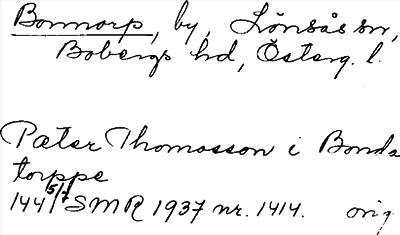 Bonnorp, by, Lönsås sn,
Bobergs hd, Österg. l.
Pæter Thomasson i Bonda
torppe
1441 5/7 SMR 1937 nr. 1414. orig